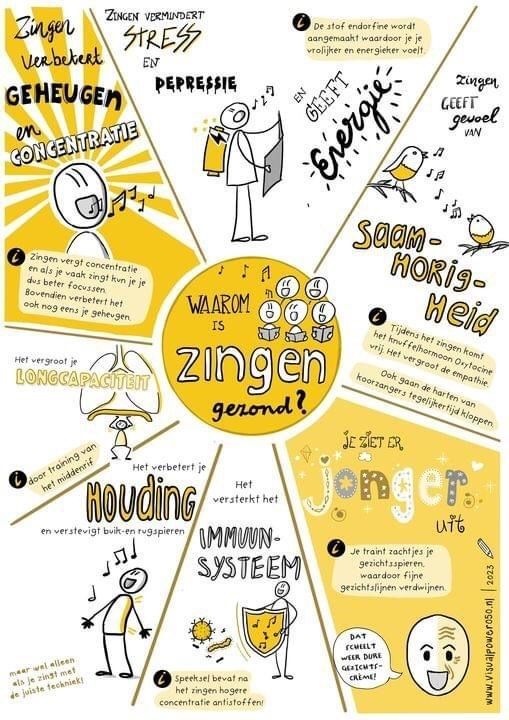 WAAROM
IS
zingen
gezond?
Zingen
Verbetert
GEHEUGEN
en
CONCENTRATIE
i Zingen vergt concentratie
en als je vaak zingt kun je je
dus beter focussen.
Bovendien verbetert het
ook nog eens je geheugen.
ZINGEN VERMINDERT
STRESS
EN
DEPRESSIE
EN
GEEFT
Energie
i De stof endorfine wordt
aangemaakt waardoor je je
vrolijker en energieker voelt.
Zingen
GEEFT
gevoel
VAN
SAAM-
HORIG-
HEID
i Tijdens het zingen komt
het knuffelhormoon Oxytocine
vrij. Het vergroot de empathie.
Ook gaan de harten van
koorzangers tegelijkertijd kloppen.
JE ZIET ER
Jonger
uit
i Je traint zachtjes je
gezichtsspieren,
waardoor fijne
gezichtslijnen verdwijnen.
DAT
SCHEELT
WEER DURE
GEZICHTS-
CRÈME!
www.visualpowered50.nl | 2023
Het
versterkt het
IMMUUN-
SYSTEEM
i Speeksel bevat na
het zingen hogere
concentratie antistoffen!
Het verbetert je
HOUDING
en verstevigt buik-en rugspieren
maar wel alleen
als je zingt met
de juiste techniek!
Het vergroot je
LONGCAPACITEIT
i door training van
het middenrif